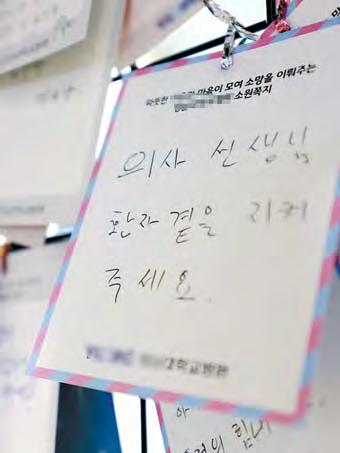 따뜻한 마음이 모여 소망을 이뤄주는
소원쪽지
의사 선생님
환자 곁을 지켜
주세요.
대학교병원